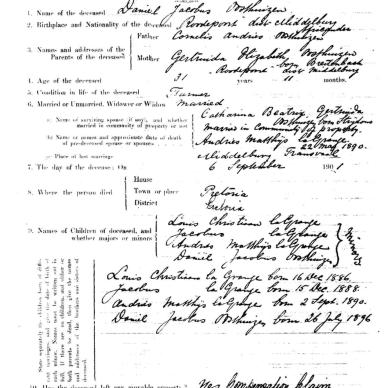 1. Name of the deceased Daniel Jacobus Oosthuizen
2. Birthplace and Nationality of the deceased Roodepoort dist Middelburg
Father Cornelis Andries Oosthuizen
3. Names and addresses of the Parents of the deceased
Mother Gertruida Elizabeth Oosthuizen
born Breitenbach
Roodepoort dist Middelburg
4. Age of the deceased 31 years 11 months
5. Condition in life of the deceased Farmer
6. Married or Unmarried, Widower or Widow Married
a) Name of surviving spouse (if any), and whether married in community of property or not
Catharina Beatrix Gertruida
Oosthuizen born Strydom
married in Community of property
b) Name or names and approximate date of death of pre-deceased spouse or spouses
Andries Matthys la Grange
22 May 1890.
c) Place of last marriage Middelburg Transvaal
7. The day of the decease; On 6 September 1901
8. Where the person died
House
Town or place Pretoria
District Pretoria
9. Names of Children of deceased, and whether majors or minors
Louis Christiaan la Grange
Jacobus la Grange
Andries Matthys la Grange
Daniel Jacobus Oosthuizen
Minors
Louis Christiaan la Grange born 16 Dec 1886.
Jacobus la Grange born 15 Dec. 1888.
Andries Matthys la Grange born 2 Sept. 1890.
Daniel Jacobus Oosthuizen born 26 July 1896
Yes Compensation Claim